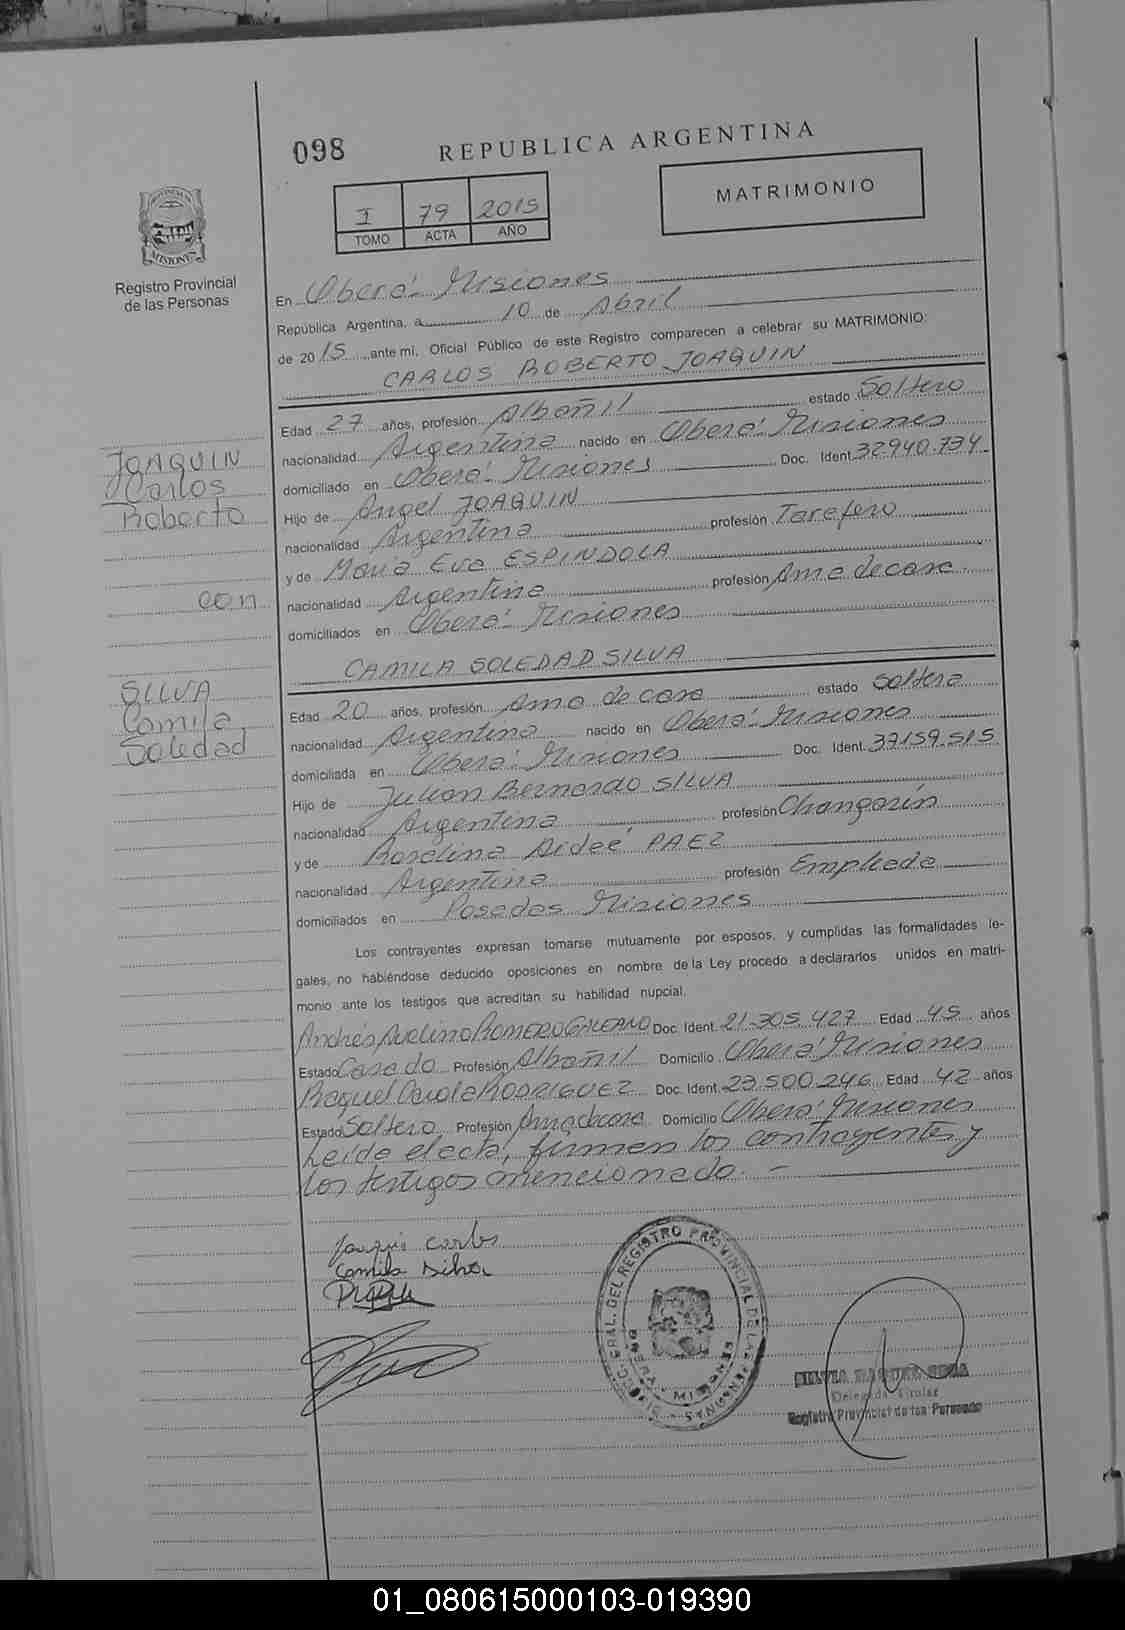 098 REPUBLICA ARGENTINA
I 79 2015
TOMO ACTA AÑO
MATRIMONIO
Registro Provincial
de las Personas
En Oberá - Misiones
República Argentina, a 10 de Abril
de 2015 ante mi, Oficial Público de este Registro comparecen a celebrar su MATRIMONIO:
CARLOS ROBERTO JOAQUIN
JOAQUIN
Carlos
Roberto
con
SILVA
Camila
Soledad
Edad 27 años, profesión Albañil estado Soltero
nacionalidad Argentina nacido en Oberá - Misiones
domiciliado en Oberá - Misiones Doc. Ident. 32.940.734
Hijo de Angel JOAQUIN
nacionalidad Argentina profesión Tarefero
y de Maria Eva ESPINDOLA
nacionalidad Argentina profesión Ama de casa
domiciliados en Oberá - Misiones
CAMILA SOLEDAD SILVA
Edad 20 años, profesión Ama de casa estado Soltera
nacionalidad Argentina nacido en Oberá - Misiones
domiciliada en Oberá - Misiones Doc. Ident. 37.159.515
Hijo de Julian Bernardo SILVA
nacionalidad Argentina profesión Changarín
y de Roselina Aideé PAEZ
nacionalidad Argentina profesión Empleada
domiciliados en Posadas Misiones
Los contrayentes expresan tomarse mutuamente por esposos, y cumplidas las formalidades le-
gales, no habiéndose deducido oposiciones en nombre de la Ley procedo a declararlos unidos en matri-
monio ante los testigos que acreditan su habilidad nupcial.
Andrés Avelino ROMERO GALEANO Doc. Ident. 21.305.427 Edad 45 años
Estado Casado Profesión Albañil Domicilio Oberá - Misiones
Raquel Carola RODRIGUEZ Doc. Ident. 23.500.246 Edad 42 años
Estado Soltero Profesión Ama de casa Domicilio Oberá - Misiones
Leída el acta, firman los contrayentes y
los testigos mencionado. -
Joaquin Carlos
Camila Silva
DIREC. GRAL. DEL REGISTRO PROVINCIAL DE LAS PERSONAS
OBERA - MISIONES
Delegada Titular
Registro Provincial de las Personas
01_080615000103-019390